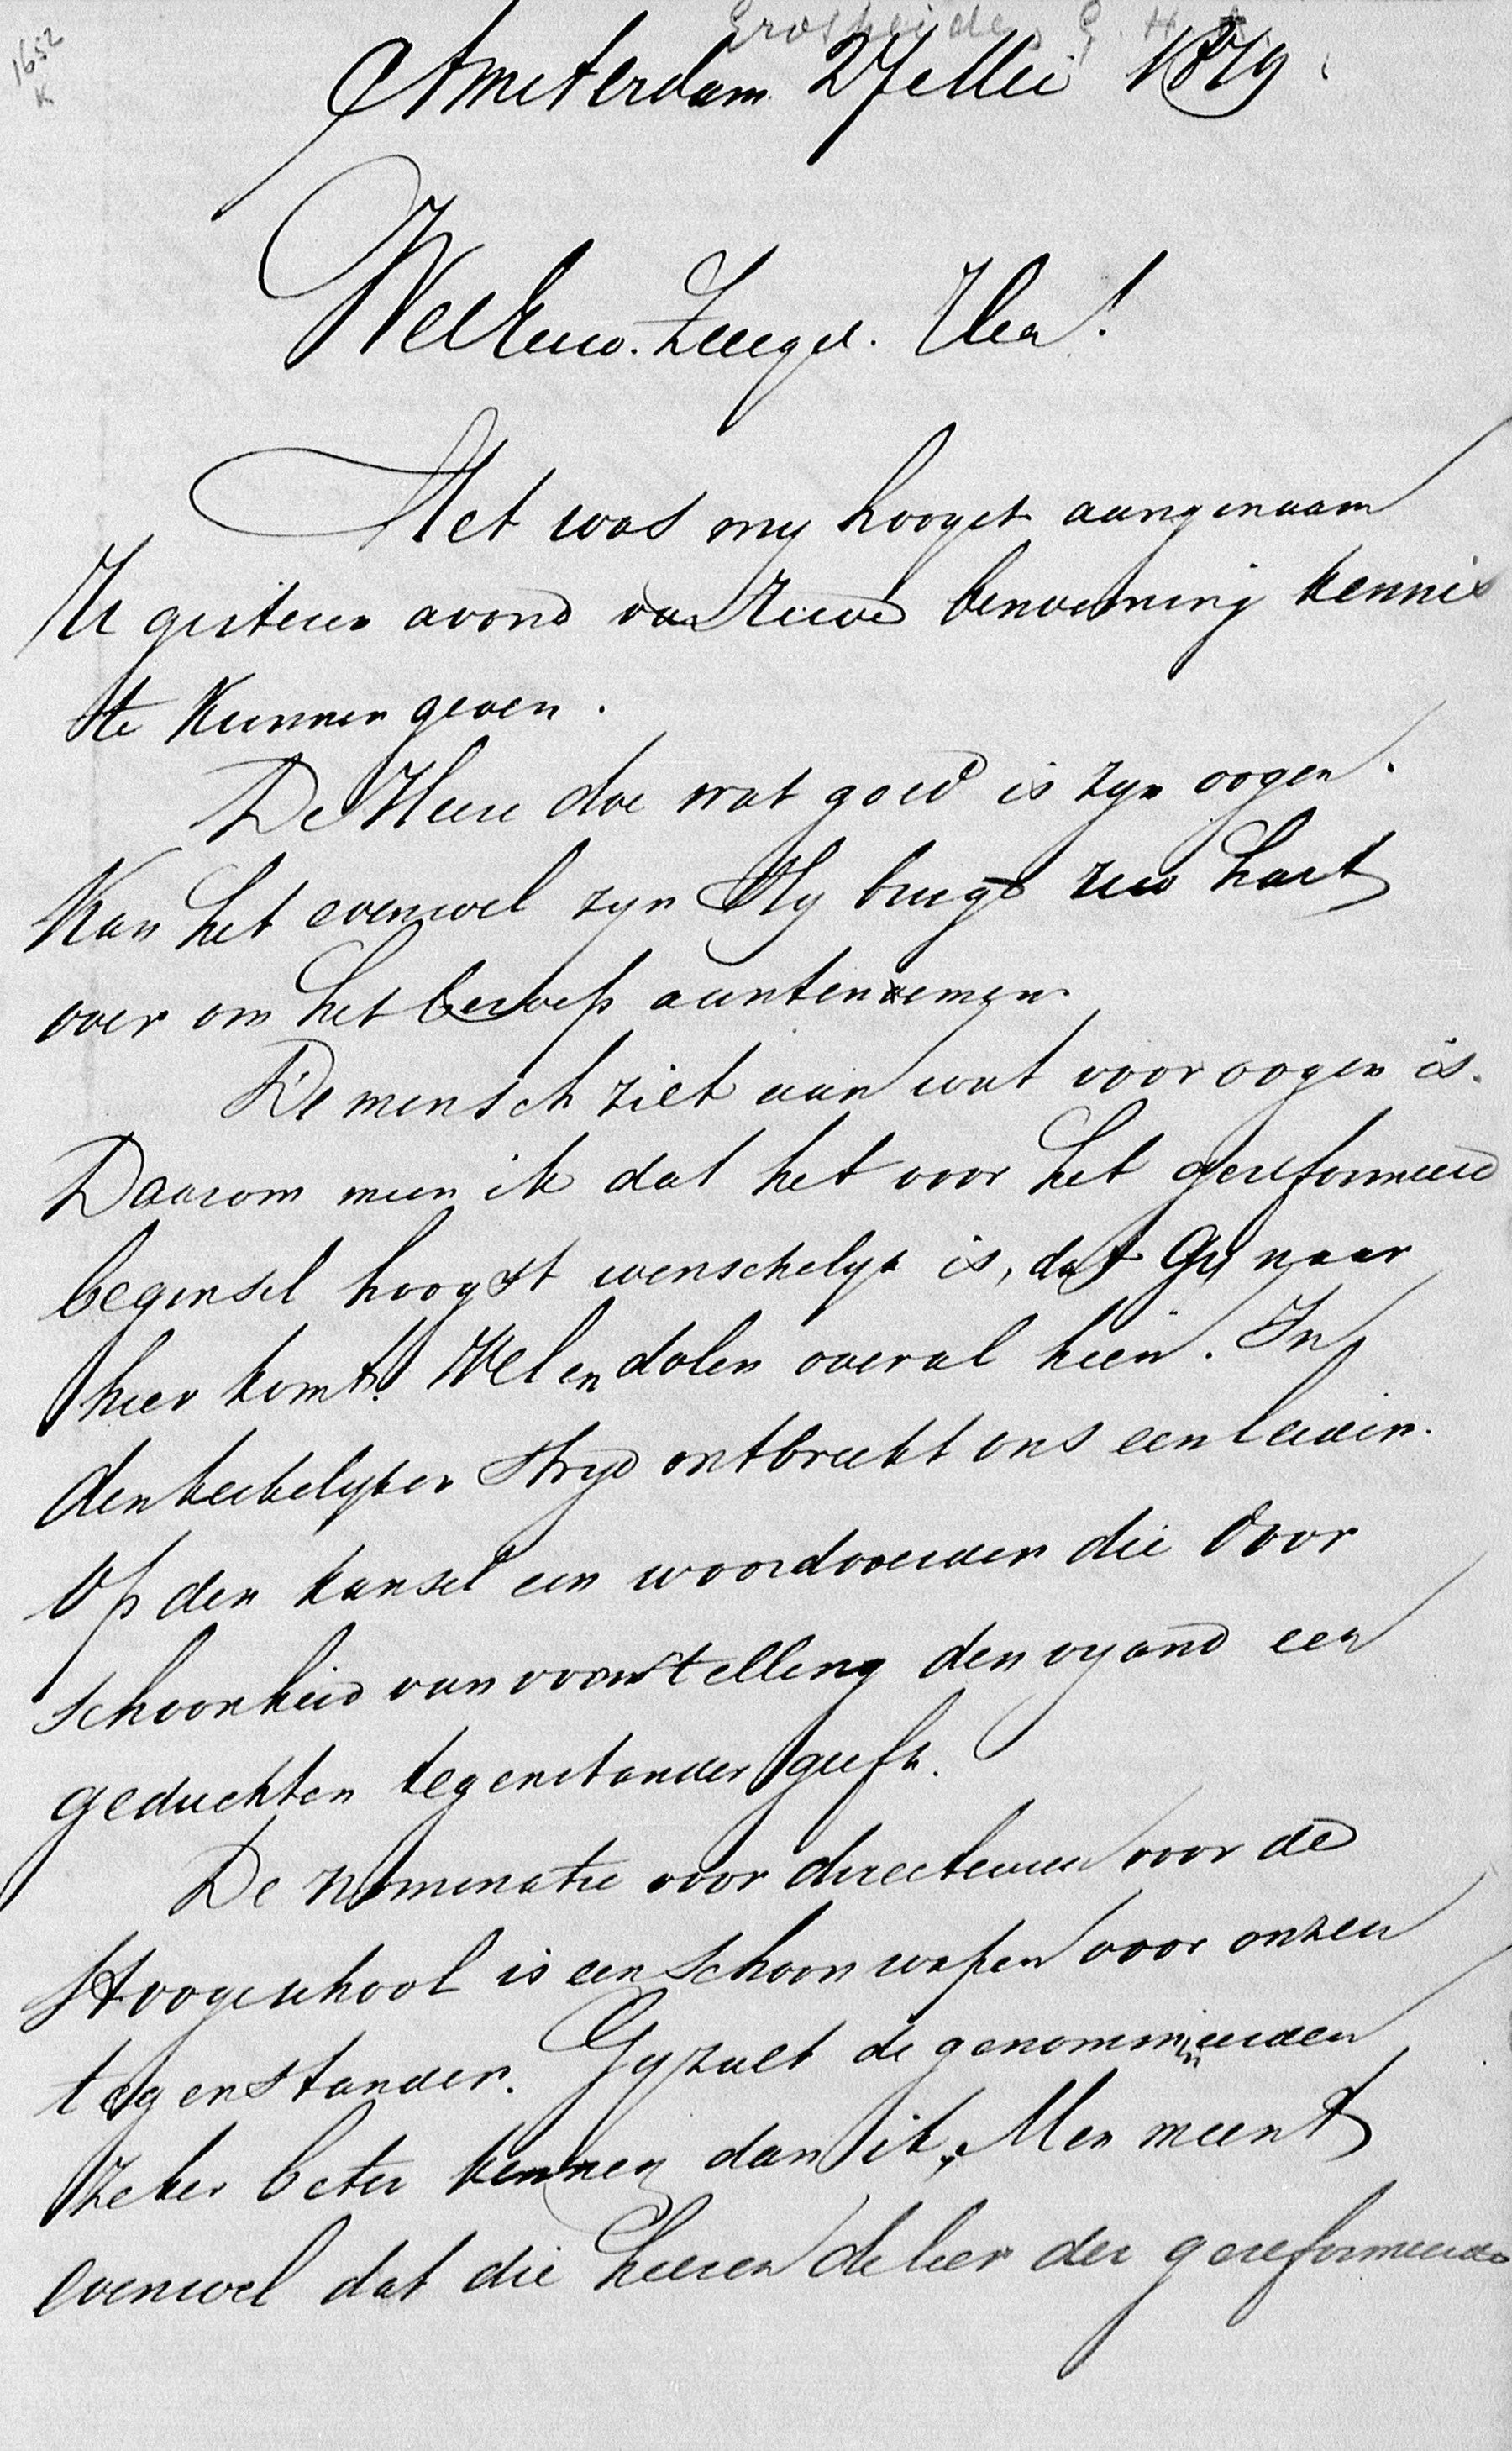 1652
K
Grosheide, G. H.
Amsterdam 27 Mei 1879.
WelEerw. Zeergel. Heer!
Het was my hoogst aangenaam
U gisteren avond van Uwe benoeming kennis
te kunnen geven.
De Heere doe wat goed is zyn oogen.
Kan het evenwel zyn Hy buige uw hart
over om het beroep aantenemen.
De mensch ziet aan wat voor oogen is.
Daarom meen ik dat het voor het gereformeerd
beginsel hoogst wenschelyk is, dat Gy naar
hier komt. Wel en dolen overal heen. In
den kerkelyken stryd ontbreekt ons een leider.
Op den kansel een woordvoerder die door
schoonheid van voorstelling den vyand een
geduchten tegenstander geeft.
De nominatie voor directeuren voor de
Hoogeschool is een schoon wapen voor onzen
tegenstander. Gy zult de genomineerden
zeker beter kennen dan ik. Men meent
evenwel dat die heeren de leer der gereformeerde